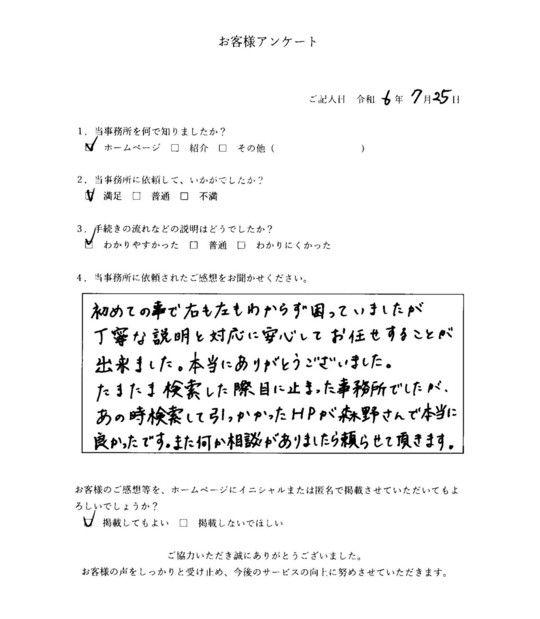 お客様アンケート
ご記入日　令和 6 年 7 月 25 日
1．当事務所を何で知りましたか？
☑ ホームページ　□　紹介　□　その他（　　　　　　　　　）
2．当事務所に依頼して、いかがでしたか？
☑ 満足　□　普通　□　不満
3．手続きの流れなどの説明はどうでしたか？
☑ わかりやすかった　□　普通　□　わかりにくかった
4．当事務所に依頼されたご感想をお聞かせください。
初めての事で右も左もわからず困っていましたが
丁寧な説明と対応に安心してお任せすることが
出来ました。本当にありがとうございました。
たまたま検索した際目に止まった事務所でしたが、
あの時検索して引っかかったHPが森野さんで本当に
良かったです。また何か相談がありましたら頼らせて頂きます。
お客様のご感想等を、ホームページにイニシャルまたは匿名で掲載させていただいてもよ
ろしいでしょうか？
☑ 掲載してもよい　□　掲載しないでほしい
ご協力いただき誠にありがとうございました。
お客様の声をしっかりと受け止め、今後のサービスの向上に努めさせていただきます。